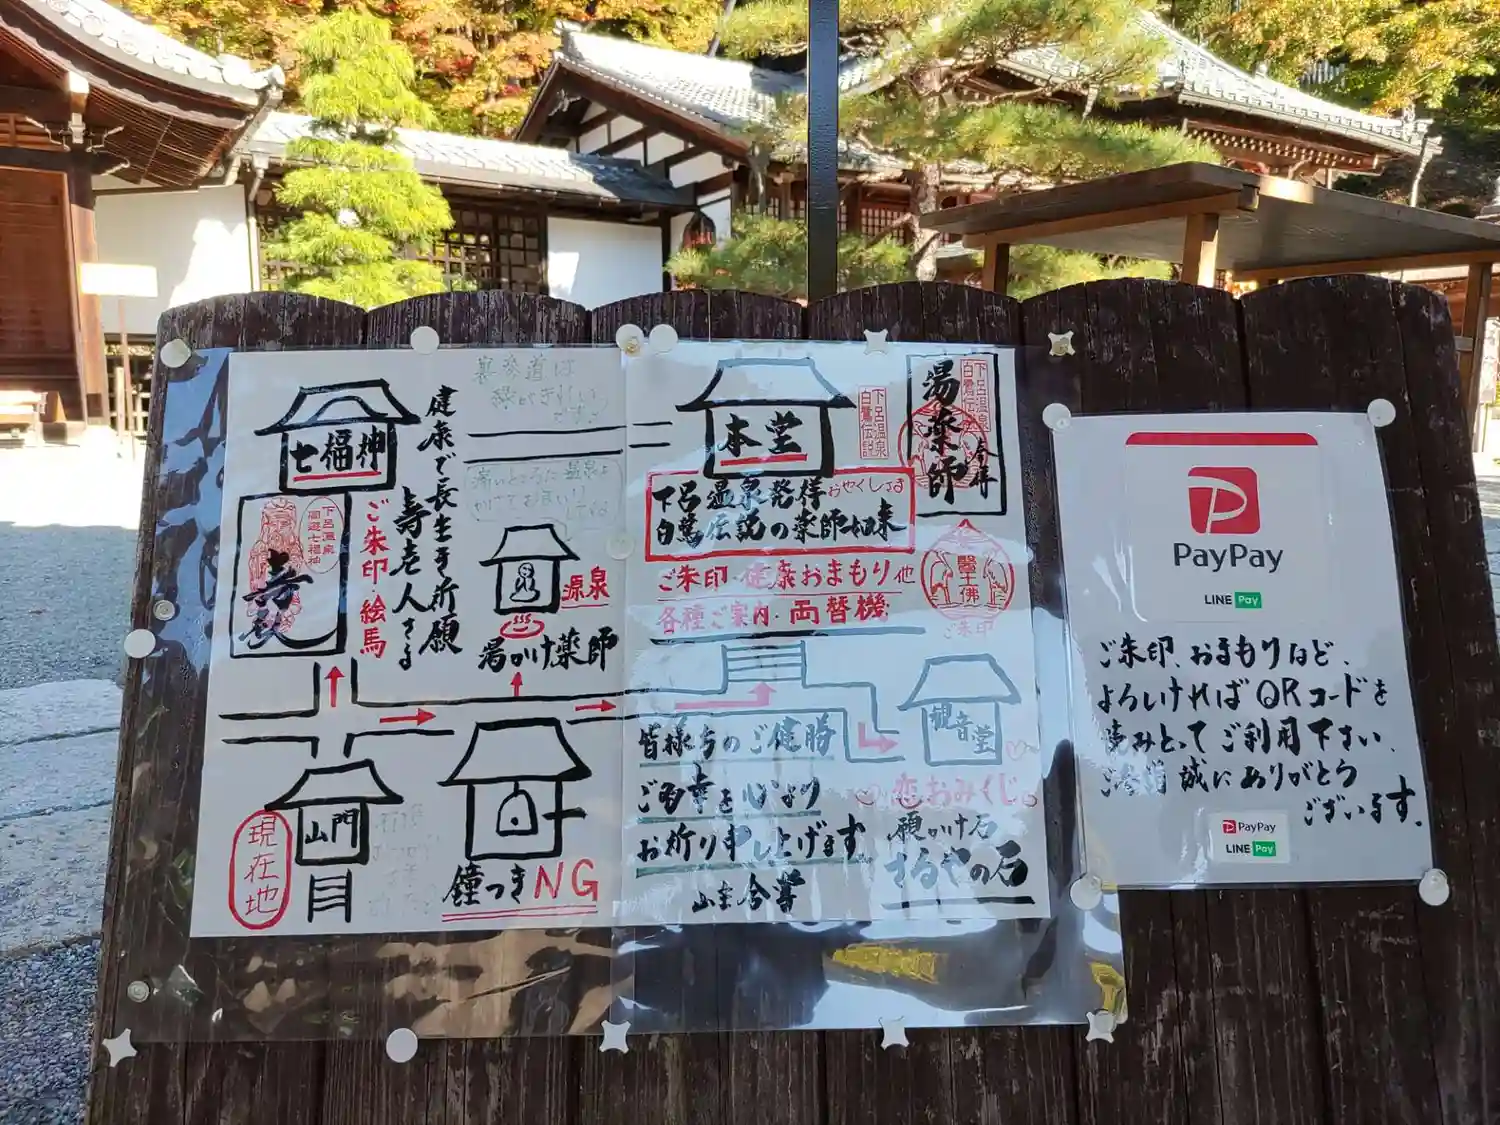 七福神
寿
下呂温泉
回遊七福神
健康で長生き祈願
寿老人さま
ご朱印・絵馬
裏参道は
痛いところに温泉を
かけてお祈り
源泉
湯かけ薬師
山門
現在地
鐘つきNG
本堂
下呂温泉
白鷺伝説
湯薬師
下呂温泉
白鷺伝説
奉拝
下呂温泉発祥おやくしさま
白鷺伝説の薬師如来
ご朱印・健康おまもり他
各種ご案内・両替機
醫王佛
ご朱印
観音堂
皆様方のご健勝
ご多幸を心より
お祈り申し上げます
山主合掌
恋おみくじ
願かけ石
さるやの石
PayPay
LINE Pay
ご朱印、おまもりなど、
よろしければQRコードを
読みとってご利用下さい。
ご参拝誠にありがとう
ございます。
PayPay
LINE Pay